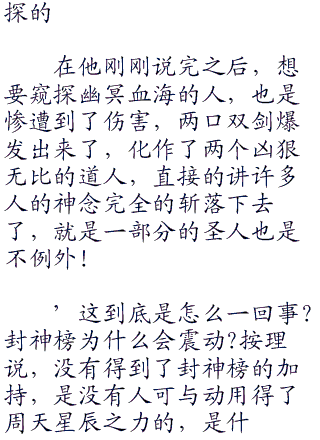 探的
在他刚刚说完之后，想
要窥探幽冥血海的人，也是
惨遭到了伤害，两口双剑爆
发出来了，化作了两个凶狠
无比的道人，直接的讲许多
人的神念完全的斩落下去
了，就是一部分的圣人也是
不例外！
’这到底是怎么一回事？
封神榜为什么会震动?按理
说，没有得到了封神榜的加
持，是没有人可与动用得了
周天星辰之力的，是什